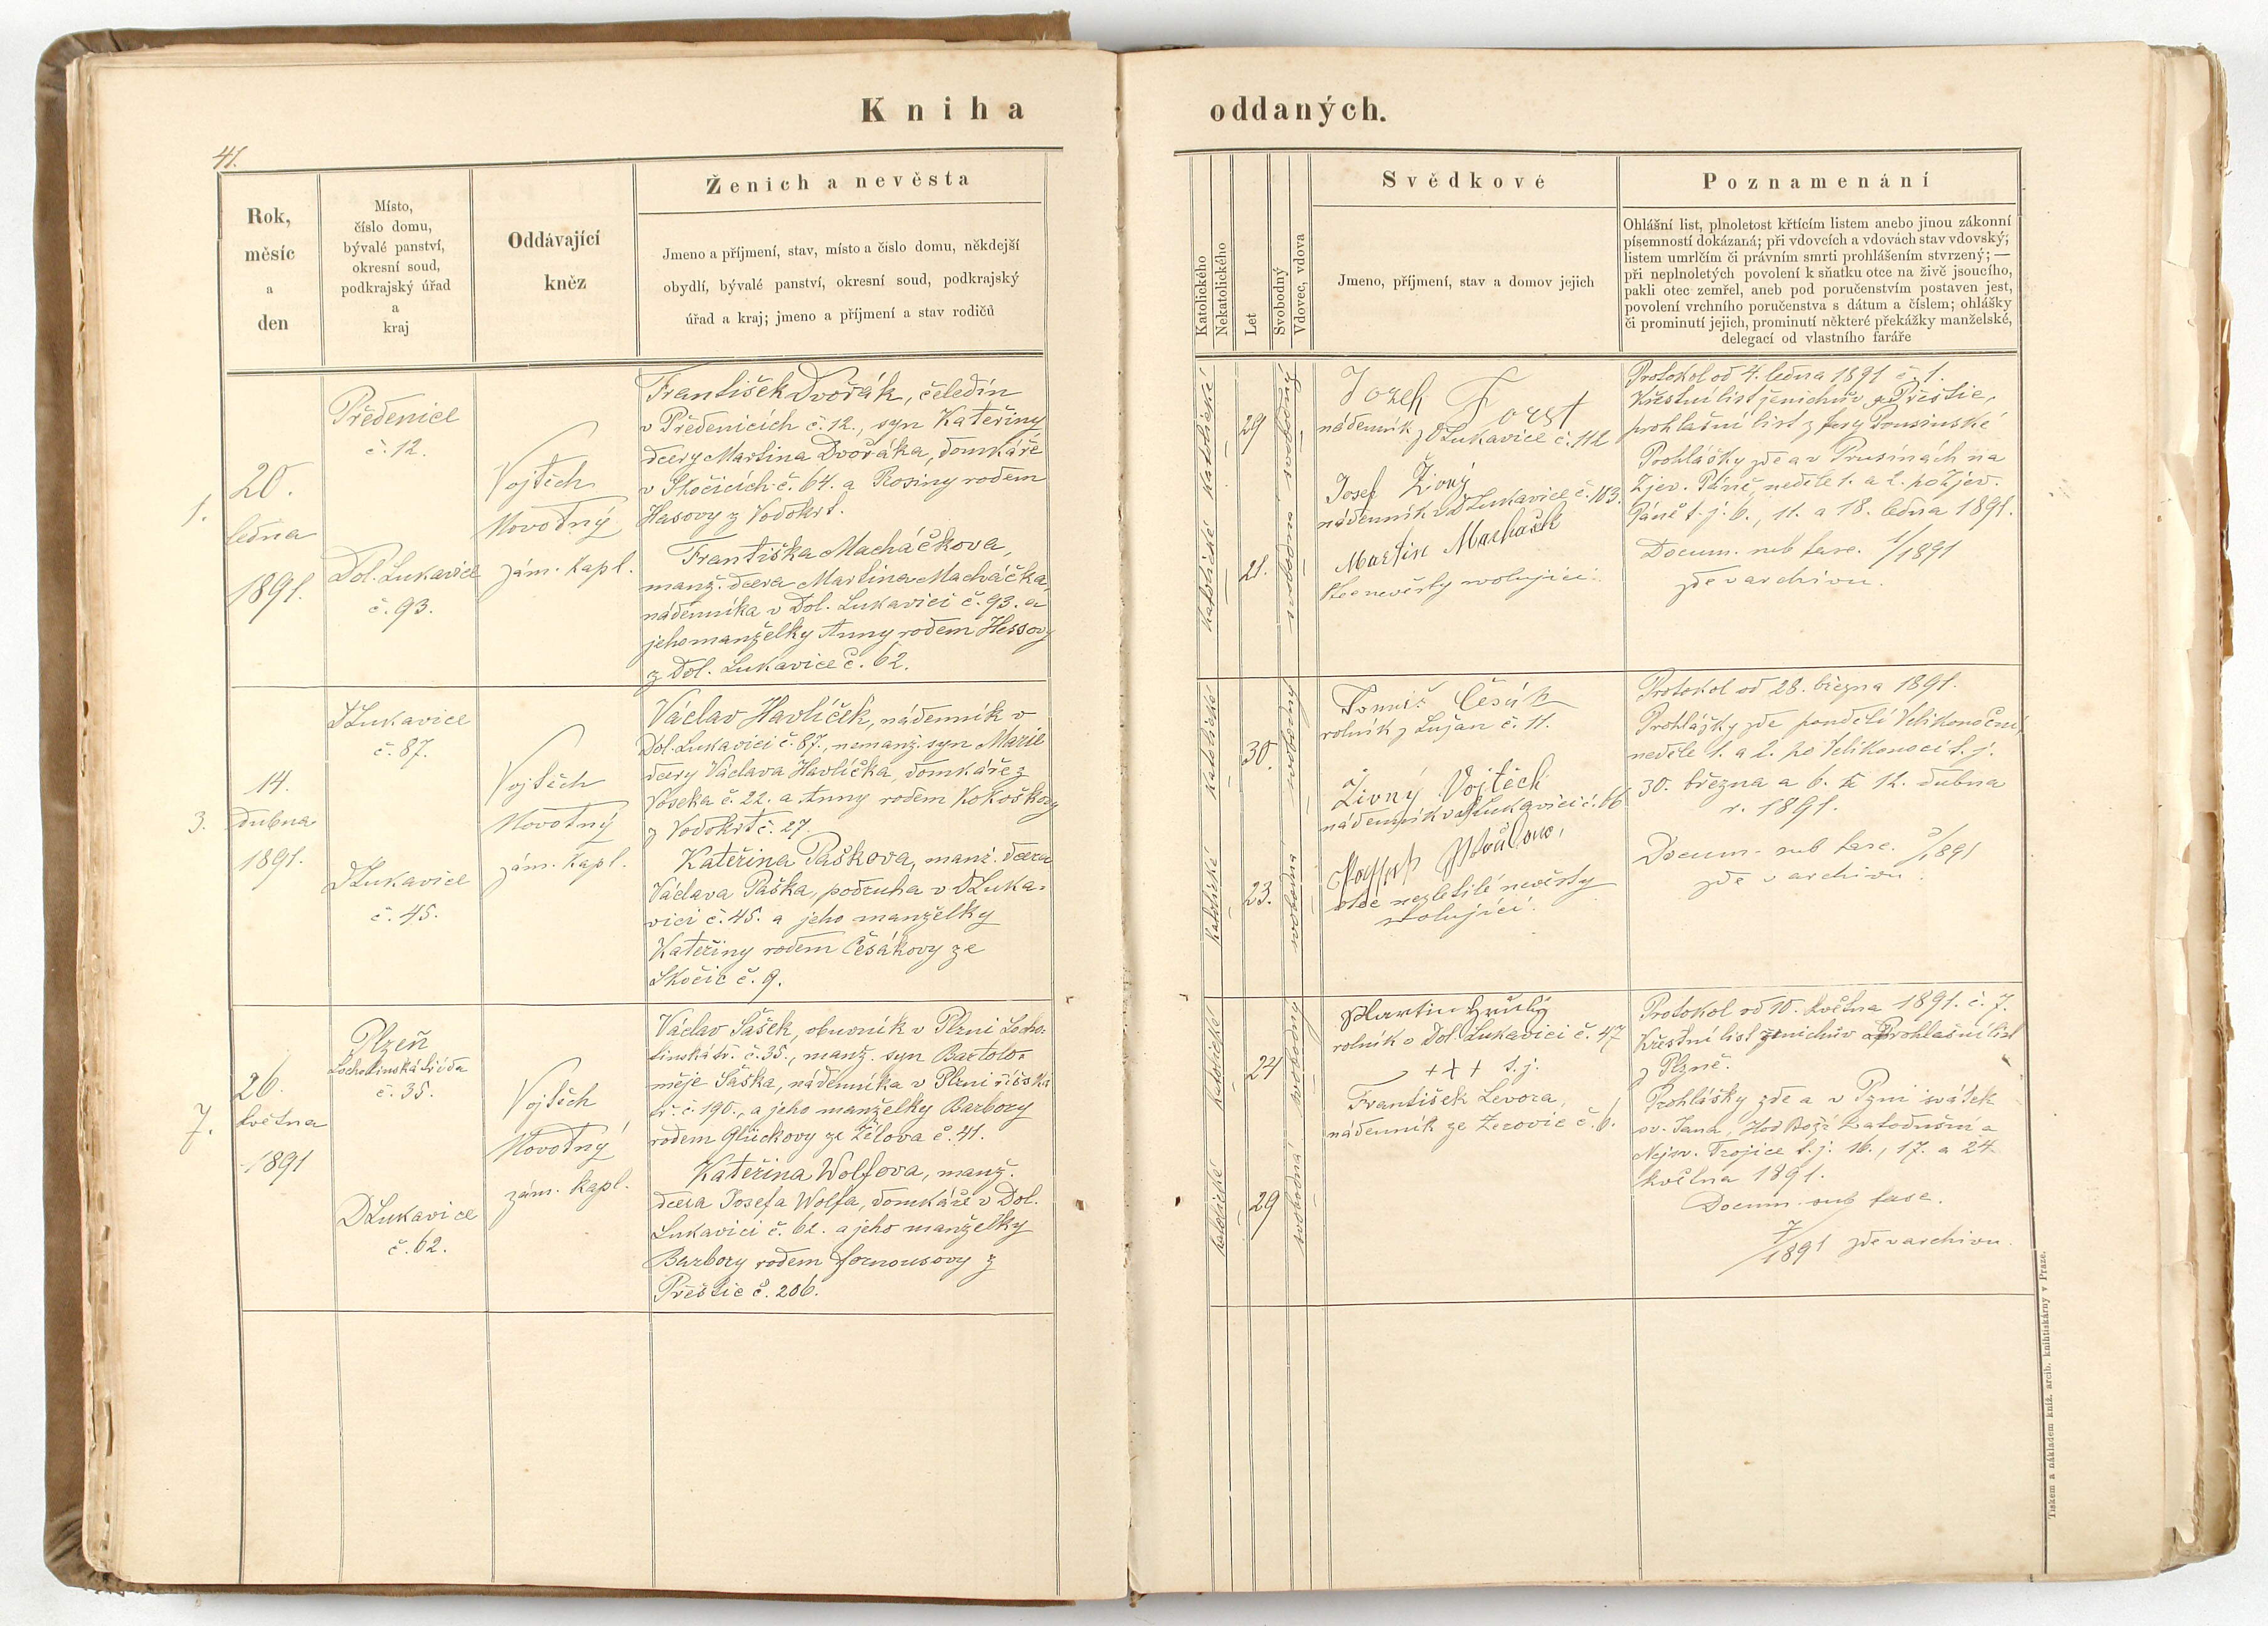 Kniha
oddaných.
41.
Rok,
měsíc
a
den
Místo,
číslo domu,
bývalé panství,
okresní soud,
podkrajský úřad
a
kraj
Oddávající
kněz
Ženich a nevěsta
Jmeno a příjmení, stav, místo a číslo domu, někdejší
obydlí, bývalé panství, okresní soud, podkrajský
úřad a kraj; jmeno a příjmení a stav rodičů
Katolického
Nekatolického
Let
Svobodný
Vdovec, vdova
Svědkové
Jmeno, příjmení, stav a domov jejich
Poznamenání
Ohlášní list, plnoletost křtícím listem anebo jinou zákonní
písemností dokázaná; při vdovcích a vdovách stav vdovský;
listem umrlčím či právním smrti prohlášením stvrzený; —
při neplnoletých povolení k sňatku otce na živě jsoucího,
pakli otec zemřel, aneb pod poručenstvím postaven jest,
povolení vrchního poručenstva s dátum a číslem; ohlášky
či prominutí jejich, prominutí některé překážky manželské,
delegací od vlastního faráře
1.
20.
ledna
1891.
Předenice
č. 12.
Dol. Lukavice
č. 93.
Vojtěch
Novotný
zám. kapl.
František Dvořák, čeledín
v Předenicích č. 12., syn Kateřiny
dcery Martina Dvořáka, domkáře
v Skočicích č. 64. a Rosiny rodem
Hasovy z Vodokrt.
Františka Macháčkova,
manž. dcera Martina Macháčka,
nádenníka v Dol. Lukavici č. 93. a
jeho manželky Anny rodem Hessovy
z Dol. Lukavice č. 62.
katolické
katolické
29
21.
svobodný
svobodná
Jozef
nádenník z DLukavice č. 112
Josef Živný
nádenník v DLukavice č. 103.
Martin Machaček
otec nevěsty svolující.
Protokol od 4. ledna 1891 č. 1.
Křestní list ženichův z Přeštic,
prohlašní list z fary
Prohlášky zde a v Prusinách na
Zjev. Páně, neděle 1. a 2. po Zjev.
Páně t. j. 6., 11. a 18. ledna 1891.
Docum. sub fasc. 1/1891
zde v archivu.
3.
14.
dubna
1891.
DLukavice
č. 87.
DLukavice
č. 45.
Vojtěch
Novotný
zám. kapl.
Václav Havlíček, nádenník v
Dol. Lukavici č. 87., nemanž. syn Marie
dcery Václava Havlíčka, domkáře z
Voseka č. 22. a Anny rodem Kokoškovy
z Vodokrt č. 27.
Kateřina Paškova, manž. dcera
Václava Paška, podruha v DLuka-
vici č. 45. a jeho manželky
Kateřiny rodem Česákovy ze
Skočic č. 9.
katolické
katolické
30.
23.
svobodný
svobodná
Tomáš Česák
rolník z Lužan č. 11.
Živný Vojtěch
nádenník v DLukavici č. 66
otec nezletilé nevěsty
svolující.
Protokol od 28. března 1891.
Prohlášky zde pondělí Velikonoční,
neděle 1. a 2. po Velikonoci t. j.
30. března a 6. 12. dubna
r. 1891.
Docum. sub fasc. 3/1891
zde v archivu.
7.
26.
května
1891
Plzeň
Lochotinská třída
č. 35.
DLukavice
č. 62.
Vojtěch
Novotný
zám. kapl.
Václav Šašek, obuvník v Plzni Locho-
tinská tř. č. 35., manž. syn Bartolo-
měje Šaška, nádenníka v Plzni
tř. č. 190., a jeho manželky Barbory
rodem Glückovy ze Žělova č. 41.
Kateřina Wolfova, manž.
dcera Josefa Wolfa, domkáře v Dol.
Lukavici č. 62. a jeho manželky
Barbory rodem Fornousovy z
Přeštic č. 206.
katolické
katolické
24
29
svobodný
svobodná
Martin Hrubý
rolník v Dol. Lukavici č. 47
+++ t. j.
František Levora,
nádenník ze Žerovic č. 6.
Protokol od 10. května 1891. č. 7.
Křestní list ženichův a Prohlašní list
z Plzně.
Prohlášky zde a v Plzni svátek
sv. Jana, Hod Boží Svatodušní a
Nejsv. Trojice t. j. 16., 17. a 24.
května 1891.
Docum. sub fasc.
7/1891 zde v archivu.
Tiskem a nákladem kníž. arcib. knihtiskárny v Praze.